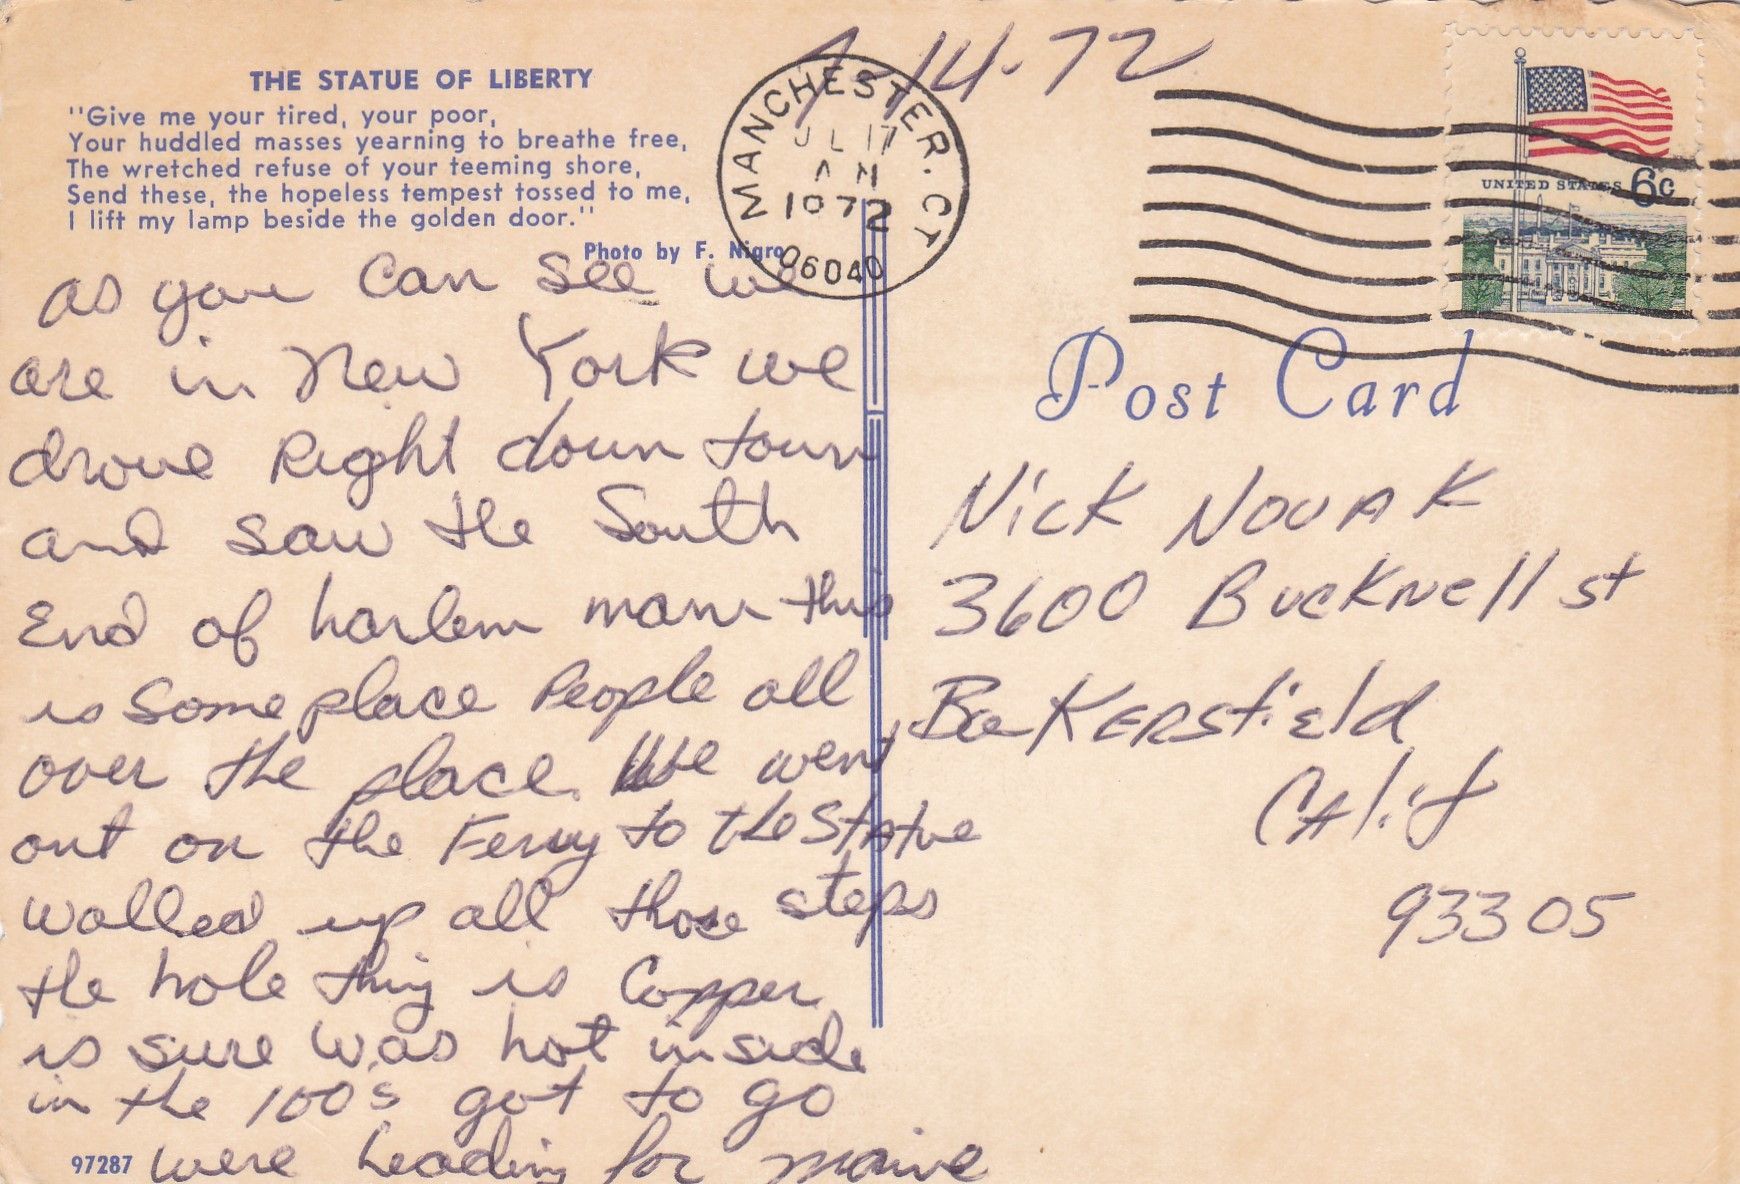 THE STATUE OF LIBERTY
"Give me your tired, your poor,
Your huddled masses yearning to breathe free,
The wretched refuse of your teeming shore,
Send these, the hopeless tempest tossed to me,
I lift my lamp beside the golden door."
Photo by F. Nigro
as you can see we
are in New York we
drove Right down town
and saw the South
End of harlem man this
is some place People all
over the place. We went
out on the Ferry to the Statue
walked up all those steps
the hole thing is Copper
is sure was hot inside
in the 100s got to go
were heading for maine
97287
7-14-72
MANCHESTER. CT
JUL 17
AM
1972
06040
UNITED STATES 6c
Post Card
Nick Novak
3600 Bucknell st
Bakersfield
Calif
93305